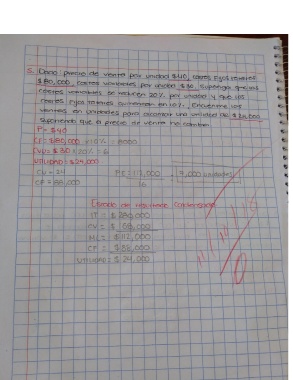 5. Dado precio de venta por unidad $40, costos fijos totales
$80,000, costos variables por unidad $30. Suponga que los
costos variables se reducen 20% por unidad y que los
costos fijos totales aumentan en 10%. Encuentre las
ventas en unidades para alcanzar una utilidad de $24,000
suponiendo que el precio de venta no cambia.
P = $40
CF = $80,000 x 10% = 8000
CVU = $30 x 20% = 6
UTILIDAD = $24,000
CV = 24
CF = 88,000
PE = 112,000 = 7,000 unidades
16
Estado de resultados Condensado
IT = $280,000
CV = $168,000
MC = $112,000
CF = $88,000
UTILIDAD = $24,000